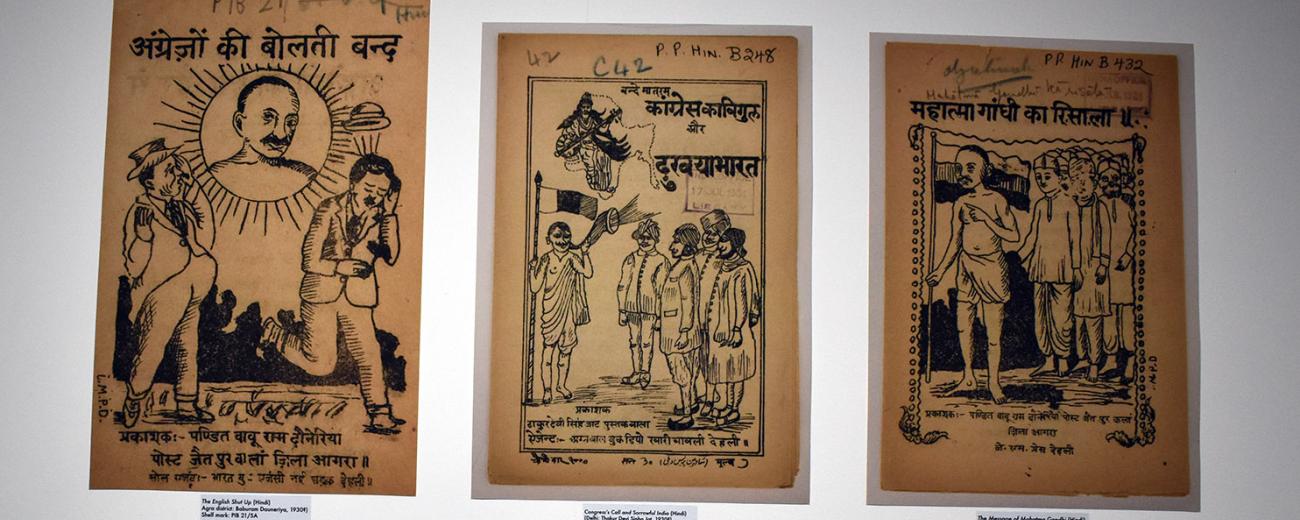 PIB 21/
अंग्रेज़ों की बोलती बन्द
L.M.P.D.
प्रकाशक:- पण्डित बाबू राम दौनेरिया
पोस्ट जैतपुर कलां ज़िला आगरा॥
The English Shut Up (Hindi)
Agra district: Baburam Dauneriya, 1930?
Shelf mark: PIB 21/5A
42
C42
P. P. HIN. B 248
बन्दे मातरम
कांग्रेस का बिगुल
और
दुखया भारत
प्रकाशक
ठाकुर देवी सिंह जाट पुस्तक वाला
देहली॥
Congress's Call and Sorrowful India (Hindi)
(Delhi: Thakur Devi Singh Jat, 1930?
PP HIN B 432
महात्मा गांधी का रिसाला॥
प्रकाशक:- पण्डित बाबू राम दौनेरिया पोस्ट जैतपुर कलां
ज़िला आगरा
प्रेस देहली
The Message of Mahatma Gandhi (Hindi)